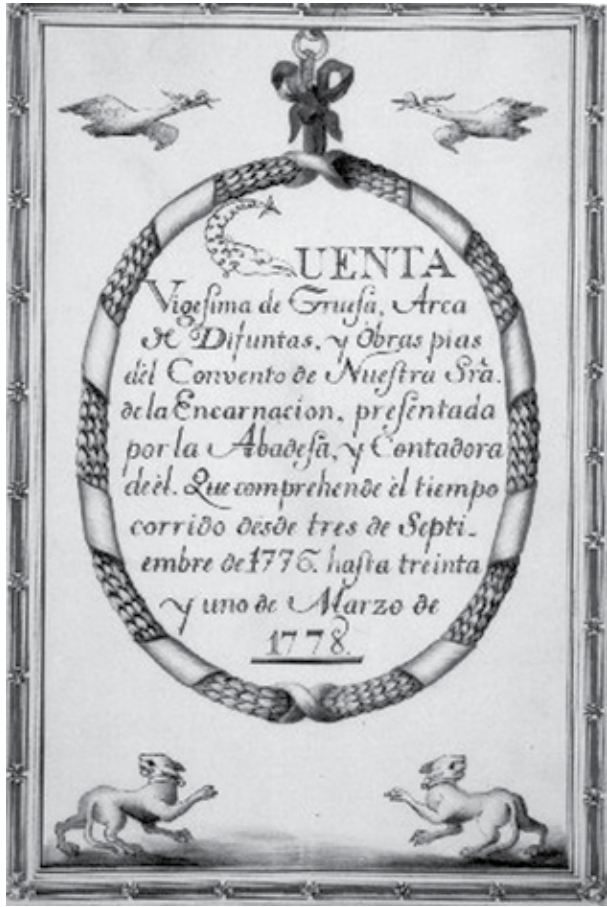 CUENTA
Vigesima de Gruesa, Arca
de Difuntas, y Obras pias
dèl Convento de Nuestra Srà.
de la Encarnacion, presentada
por la Abadesa, y Contadora
de èl. Que comprehende èl tiempo
corrido desde tres de Septi-
embre de 1776. hasta treinta
y uno de Marzo de
1778.